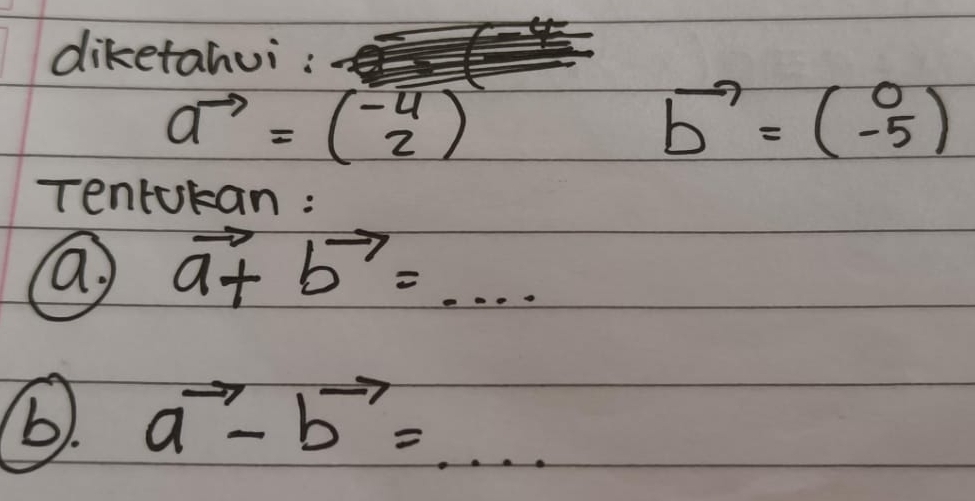 diketahui :
a→ = (-4 2) b→ = (0 -5)
Tentukan :
a. a→ + b→ = ....
b. a→ - b→ = ....